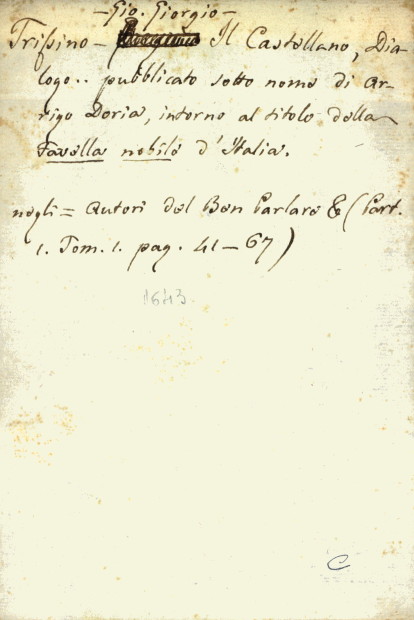 – Gio. Giorgio –
Trißino – Il Castellano, Dia-
logo.. pubblicato sotto nome di Ar-
rigo Doria, intorno al titolo della
Favella nobile d'Italia.
negli = Autori del Ben Parlare & (Part.
1. Tom. 1. pag. 41 – 67)
1643.
C